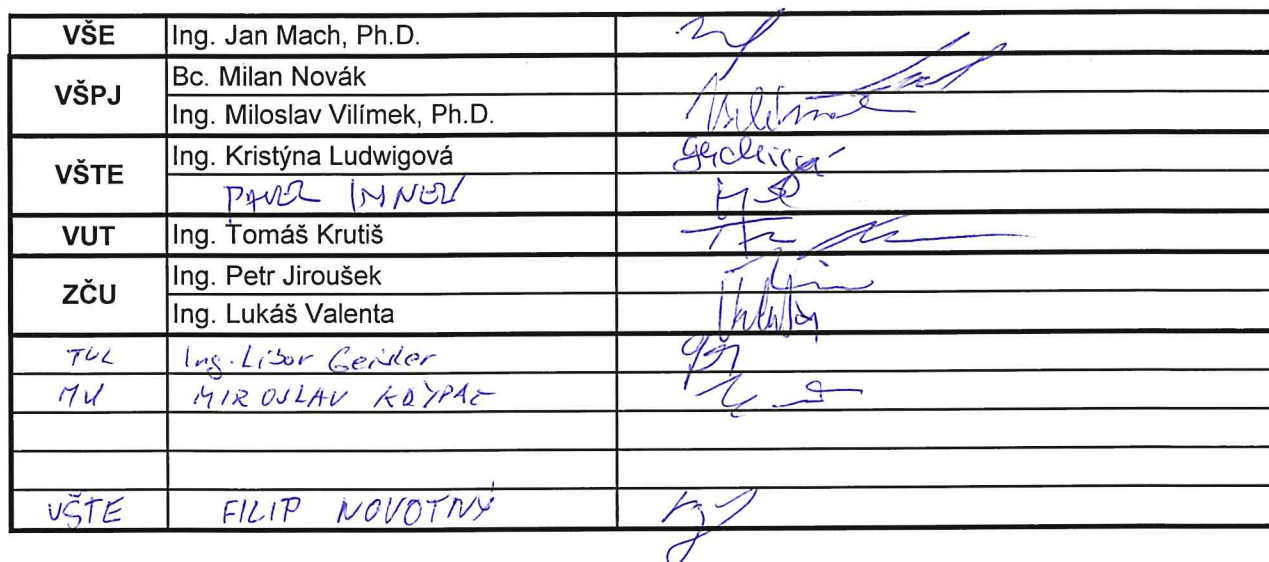 VŠE Ing. Jan Mach, Ph.D.
VŠPJ Bc. Milan Novák
Ing. Miloslav Vilímek, Ph.D.
VŠTE Ing. Kristýna Ludwigová
PAVEL
VUT Ing. Tomáš Krutiš
ZČU Ing. Petr Jiroušek
Ing. Lukáš Valenta
TUL Ing. Libor
MU MIROSLAV
VŠTE FILIP NOVOTNÝ